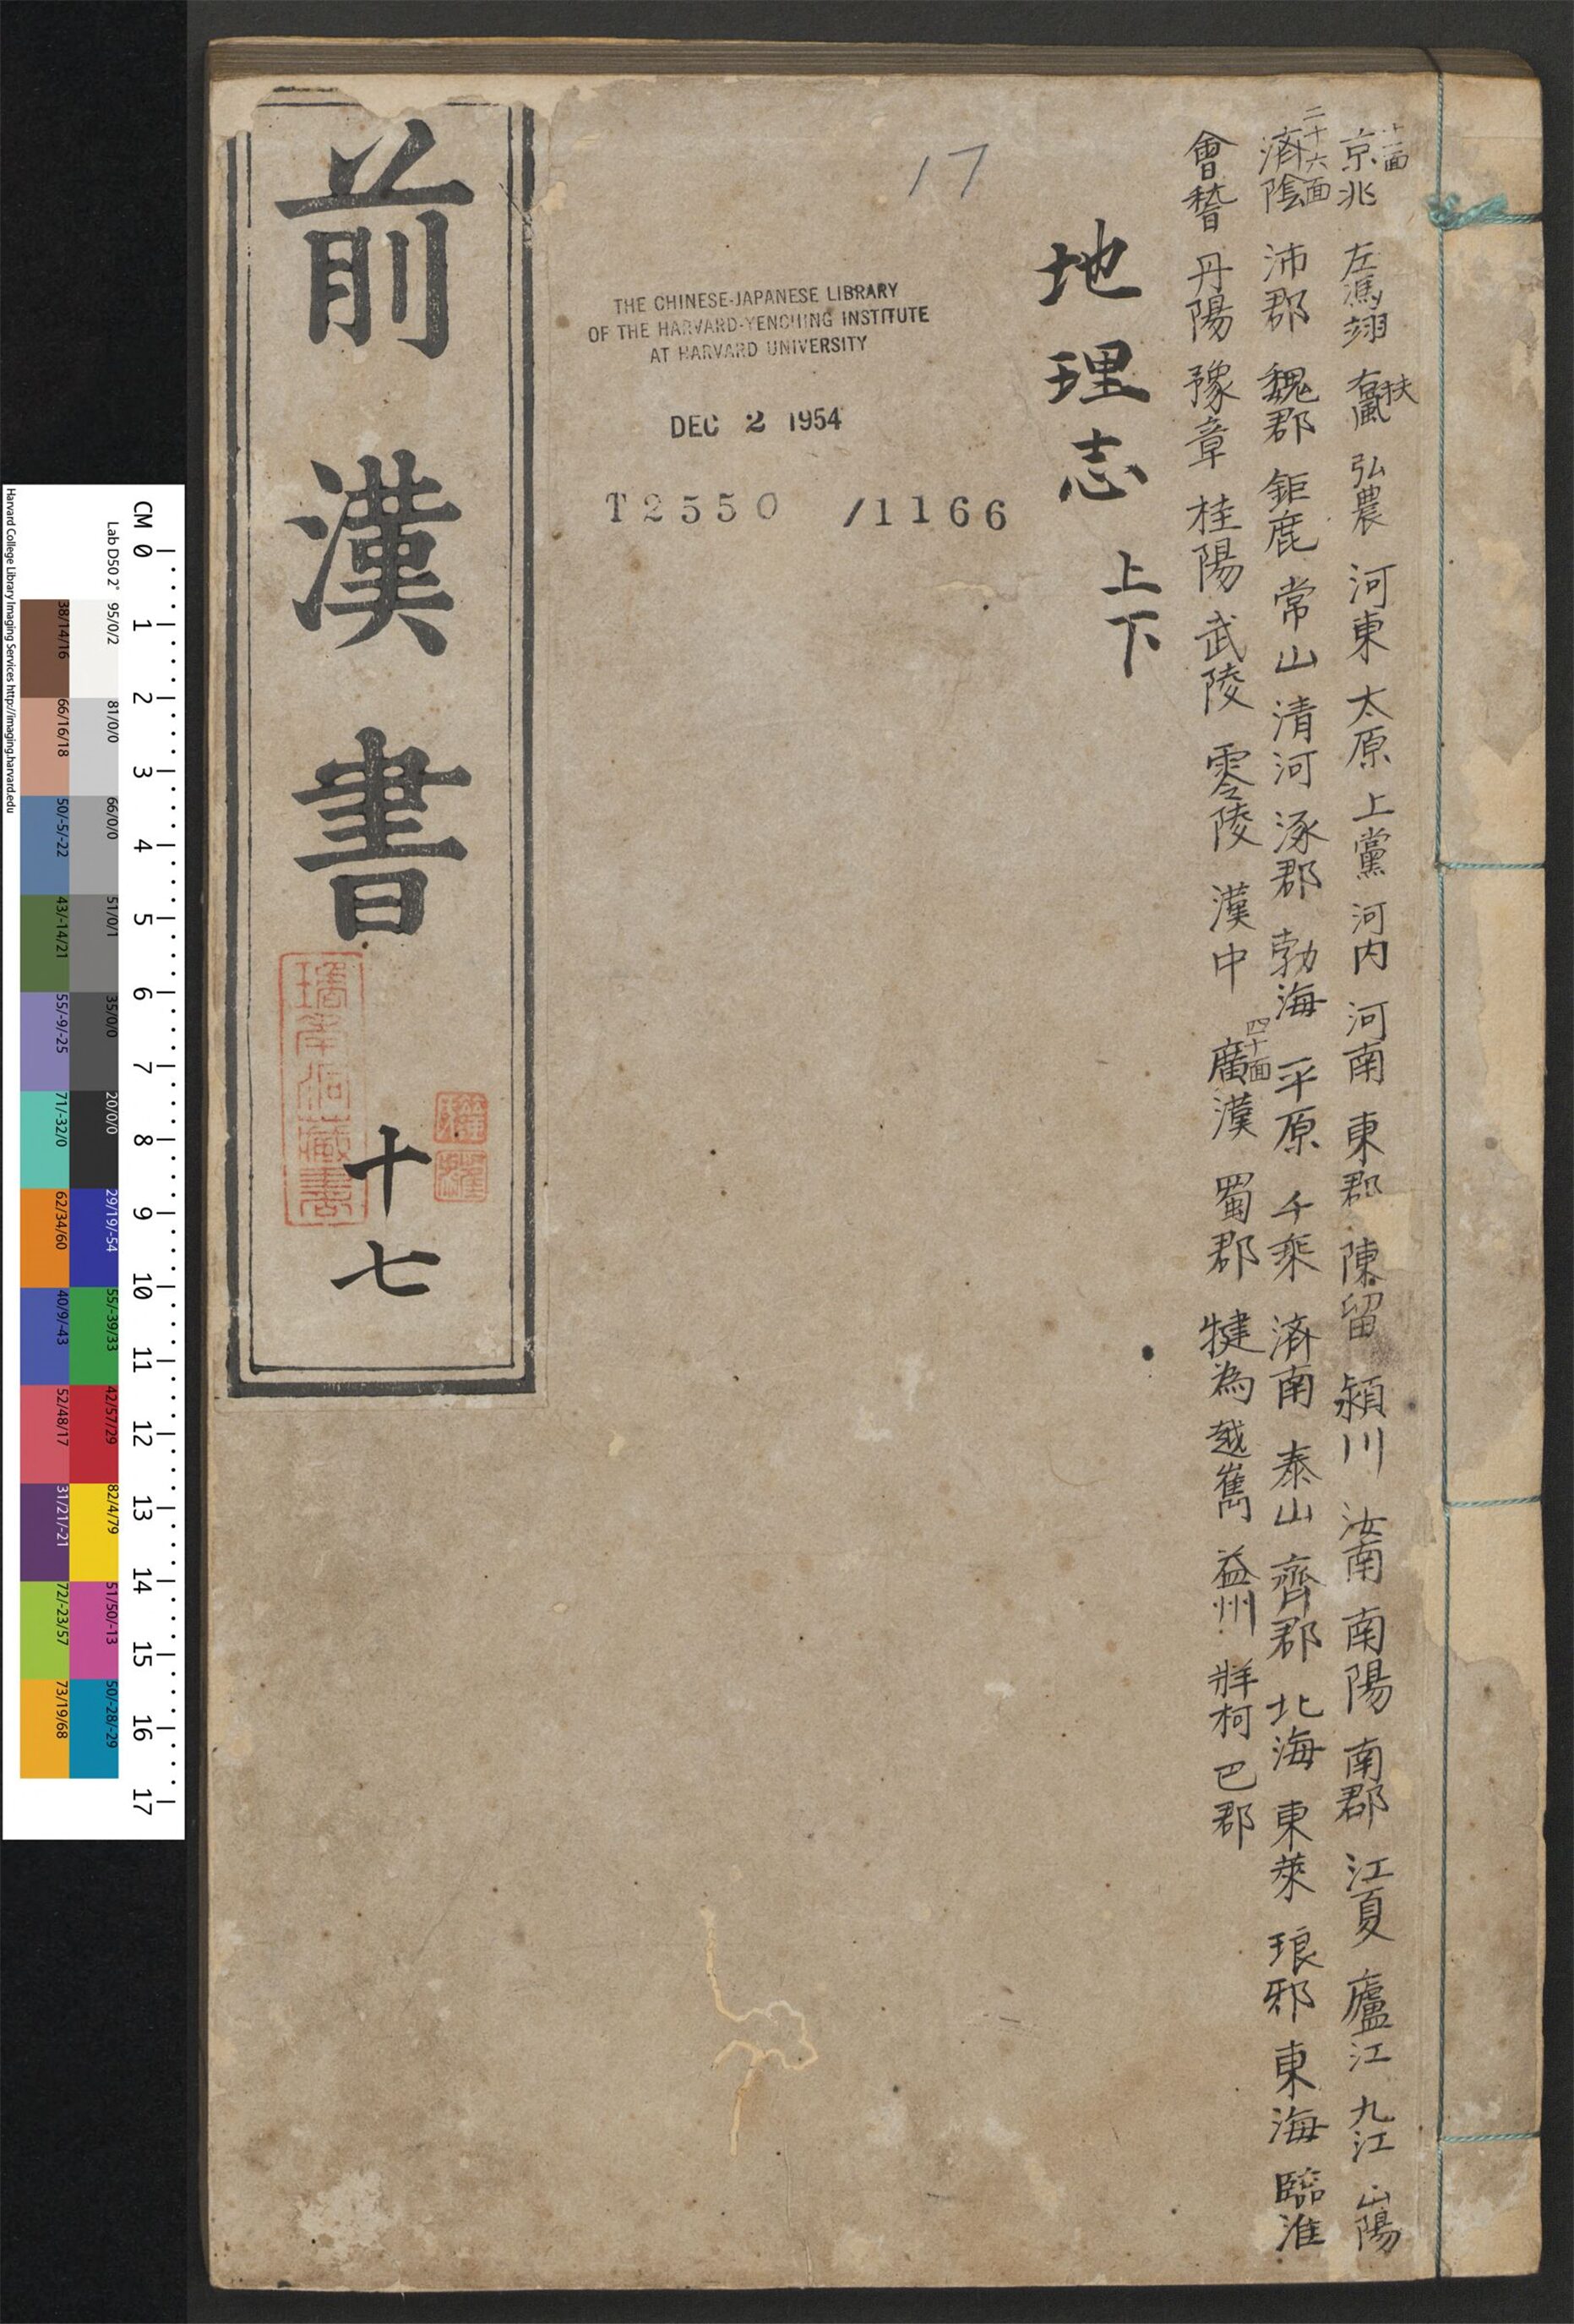 十二面
京兆 左馮翊 右扶風 弘農 河東 太原 上黨 河内 河南 東郡 陳留 潁川 汝南 南陽 南郡 江夏 廬江 九江 山陽
二十六面
済陰 沛郡 魏郡 鉅鹿 常山 清河 涿郡 勃海 平原 千乘 済南 泰山 齊郡 北海 東萊 琅邪 東海 臨淮
會稽 丹陽 豫章 桂陽 武陵 零陵 漢中
四十面
廣漢 蜀郡 犍為 越嶲 益州 牂柯 巴郡
地理志 上下
17
THE CHINESE-JAPANESE LIBRARY
OF THE HARVARD-YENCHING INSTITUTE
AT HARVARD UNIVERSITY
DEC 2 1954
T2550 /1166
前漢書
十七
藏書
CM 0 1 2 3 4 5 6 7 8 9 10 11 12 13 14 15 16 17
Lab D50 2° 95/0/2 81/0/0 66/0/0 51/0/1 35/0/0 20/0/0 29/19/-54 55/-39/33 42/57/29 82/4/79 51/50/-13 50/-28/-29
38/14/16 66/16/18 50/-5/-22 43/-14/21 55/-9/-25 71/-32/0 62/34/60 40/9/-43 52/48/17 31/21/-21 72/-23/57 73/19/68
Harvard College Library Imaging Services http://imaging.harvard.edu